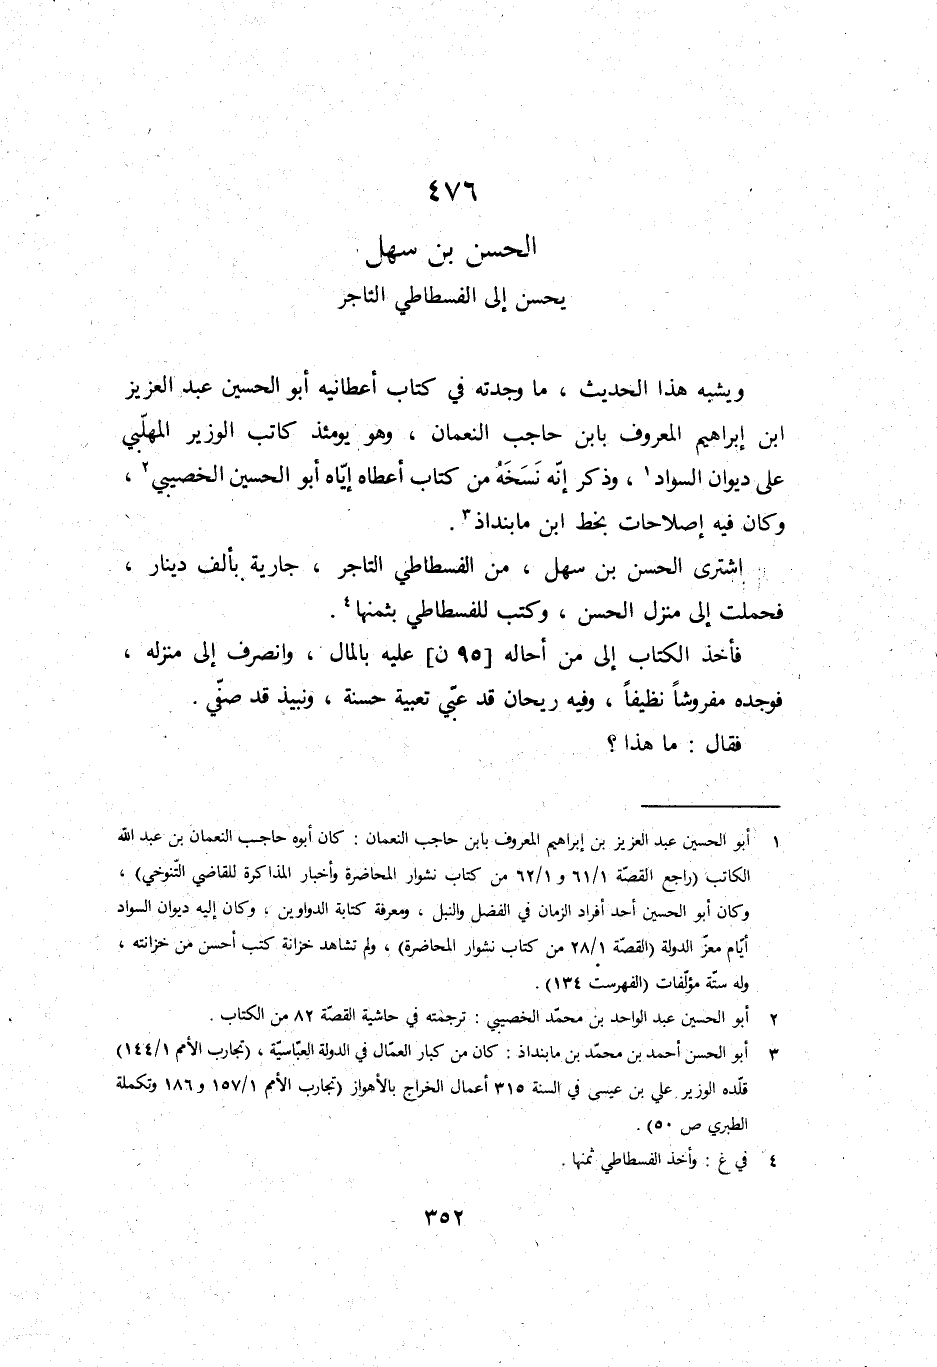 ٤٧٦
الحسن بن سهل
يحسن إلى الفسطاطي التاجر
ويشبه هذا الحديث ، ما وجدته في كتاب أعطانيه أبو الحسين عبد العزيز
ابن إبراهيم المعروف بابن حاجب النعمان ، وهو يومئذ كاتب الوزير المهلّبي
على ديوان السواد١ ، وذكر إنّه نَسَخَهُ من كتاب أعطاه إيّاه أبو الحسين الخصيبي٢ ،
وكان فيه إصلاحات بخط ابن مابنداذ٣ .
إشترى الحسن بن سهل ، من الفسطاطي التاجر ، جارية بألف دينار ،
فحملت إلى منزل الحسن ، وكتب للفسطاطي بثمنها٤ .
فأخذ الكتاب إلى من أحاله [٩٥ ن] عليه بالمال ، وانصرف إلى منزله ،
فوجده مفروشاً نظيفاً ، وفيه ريحان قد عبّي تعبية حسنة ، ونبيذ قد صفّي .
فقال : ما هذا ؟
١ أبو الحسين عبد العزيز بن إبراهيم المعروف بابن حاجب النعمان : كان أبوه حاجب النعمان بن عبد الله
الكاتب (راجع القصّة ٦١/١ و ٦٢/١ من كتاب نشوار المحاضرة وأخبار المذاكرة للقاضي التّنوخي) ،
وكان أبو الحسين أحد أفراد الزمان في الفضل والنبل ، ومعرفة كتابة الدواوين ، وكان إليه ديوان السواد
أيّام معزّ الدولة (القصّة ٢٨/١ من كتاب نشوار المحاضرة) ، ولم تشاهد خزانة كتب أحسن من خزانته ،
وله ستّة مؤلّفات (الفهرست ١٣٤) .
٢ أبو الحسين عبد الواحد بن محمّد الخصيبي : ترجمته في حاشية القصّة ٨٢ من الكتاب .
٣ أبو الحسن أحمد بن محمّد بن مابنداذ : كان من كبار العمّال في الدولة العبّاسيّة ، (تجارب الأمم ١٤٤/١)
قلّده الوزير علي بن عيسى في السنة ٣١٥ أعمال الخراج بالأهواز (تجارب الأمم ١٥٧/١ و ١٨٦ وتكملة
الطبري ص ٥٠) .
٤ في غ : وأخذ الفسطاطي ثمنها .
٣٥٢